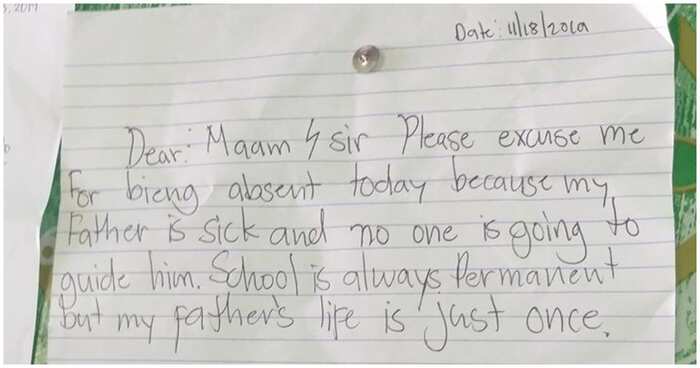 3, 2019
Date: 11/18/2019
Dear: Maam & sir Please excuse me
For bieng absent today because my
Father is sick and no one is going to
guide him. School is always Permanent
but my father's life is just once.